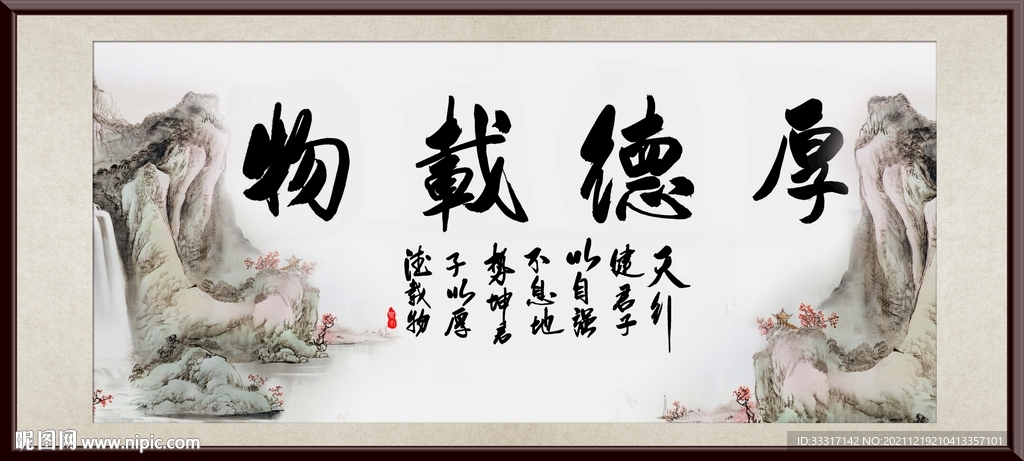 厚德載物
天行
健君子
以自强
不息地
势坤君
子以厚
德載物
昵图网 www.nipic.com
ID:33317142 NO:20211219210413357101